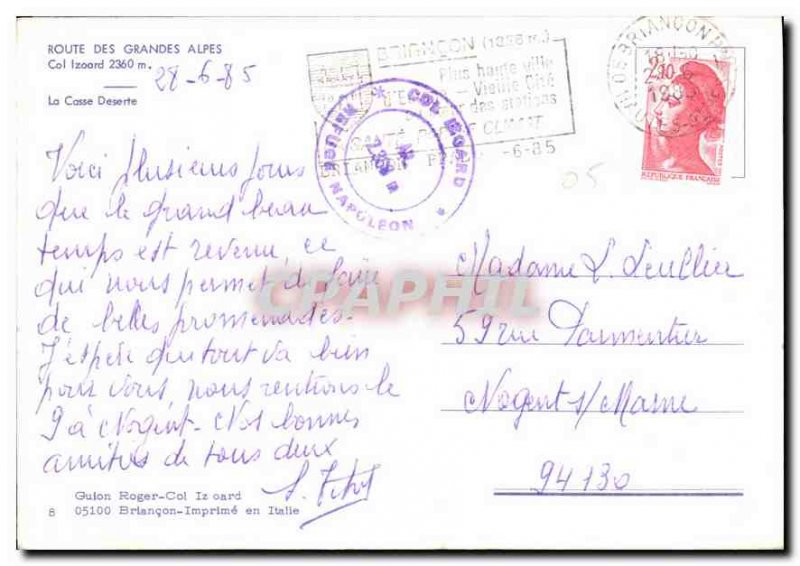 ROUTE DES GRANDES ALPES
Col Izoard 2360 m.
28-6-85
La Casse Deserte
BRIANÇON (1326 m.)
Plus haute ville
Vieille Cité
des stations
CLIMAT
-6-85
COL IZOARD
REFUGE NAPOLEON
BRIANÇON
18
1985
2,10
REPUBLIQUE FRANÇAISE
05
Voici plusieurs jours
que le grand beau
temps est revenu, ce
qui nous permet de faire
de belles promenades.
J'espère que tout va bien
pour vous, nous rentrons le
9 à Nogent. Nos bonnes
amitiés de tous deux
Madame L. Leullier
59 rue Parmentier
Nogent s/Marne
94130
CPAPHIL
Guion Roger-Col Izoard
8 05100 Briançon-Imprimé en Italie